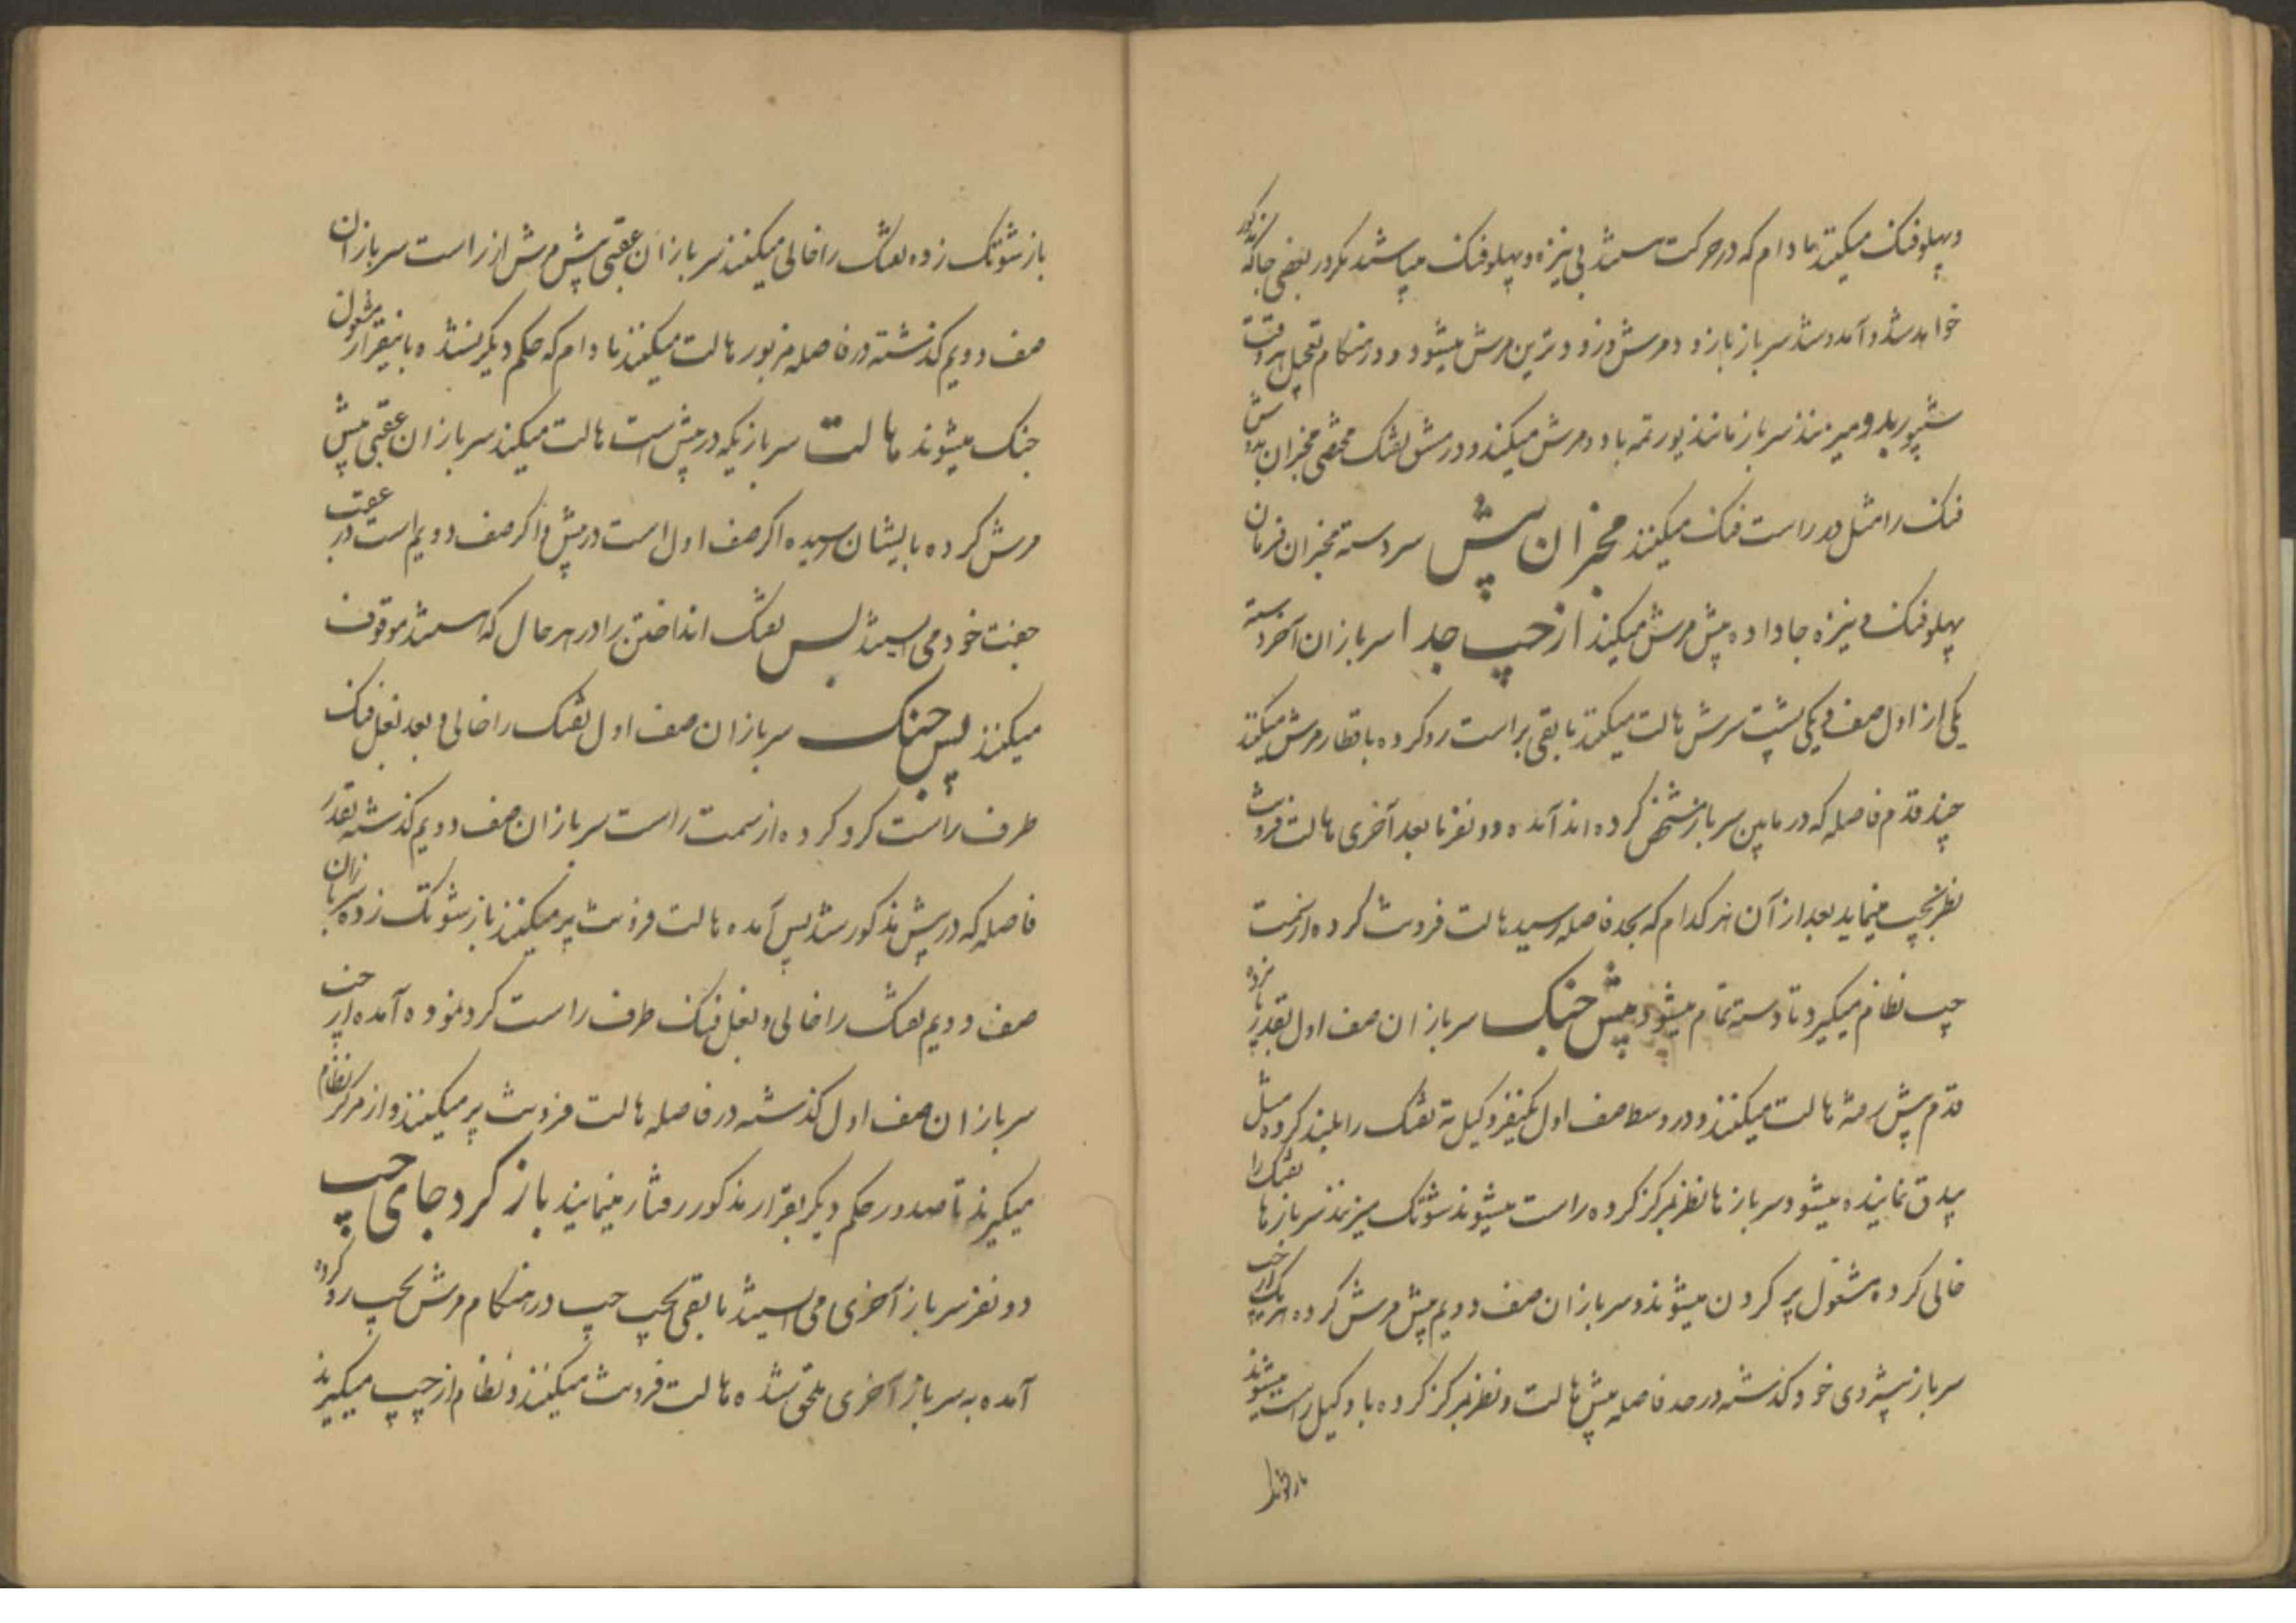 و پهلوفنک میکنند مادام که در حرکت هستند بی نیزه و پهلوفنک میباشند مکر در بعضی جا که مذکور
خواهد شد و آمد و شد سرباز با زود مرش و زود ترین مرش میشود و در هنکام تعجیل هر وقت
شیپور یدومیزنند سرباز مانند یورتمه با دو مرش میکنند و در مشق تفنک مخبران
فنک را مثل در راست فنک میکنند مخبران پیش سردسته مخبران فرمان
پهلوفنک و نیزه جا داده پیش مرش میکنند از چپ جدا سربازان آخر دسته
یکی از اول صف و یکی پشت سرش هالت میکنند مابقی براست رو کرده با قطار مرش میکنند
چند قدم فاصله که در مابین سرباز مشخص کرده اند آمده دو نفر مابعد آخری هالت فرونت
نظر بچپ مینماید بعد از آن هر کدام که بحد فاصله رسید هالت فرونت کرده از سمت
چپ نظام میکیرد تا دسته تمام میشود پیش جنک سربازان صف اول بقدر پانزده
قدم پیش رفته هالت میکنند و در وسط صف اول یکنفر وکیل ته تفنک را بلند کرده مثل
بیدق نماینده میشود سربازها نظر بمرکز کرده راست میشوند شوتک میزنند سربازها تفنک را
خالی کرده مشغول پر کردن میشوند و سربازان صف دویم پیش مرش کرده هر یک از چپ
سرباز پیشروی خود کذشته در حد فاصله پیش هالت و نظر بمرکز کرده با وکیل راست میشوند
باز شوتک
باز شوتک زده تفنک را خالی میکنند سربازان عقبی پیش مرش از راست سربازان
صف دویم کذشته در فاصله مزبور هالت میکنند مادام که حکم دیکر نشده باینقرار مشغول
جنک میشوند هالت سربازیکه در پیش است هالت میکند سربازان عقبی پیش
مرش کرده بایشان رسیده اکر صف اول است در پیش و اکر صف دویم است در عقب
جفت خود می ایستند بس تفنک انداختن را در هر حال که هستند موقوف
میکنند پس جنک سربازان صف اول تفنک را خالی و بعد بغل فنک
طرف راست کرد کرده از سمت راست سربازان صف دویم کذشته بقدر
فاصله که در پیش مذکور شد پس آمده هالت فرونت پر میکنند باز شوتک زده سربازان
صف دویم تفنک را خالی و بغل فنک طرف راست کرد نموده آمده از چپ
سربازان صف اول کذشته در فاصله هالت فرونت پر میکنند و از مرکز نظام
میکیرند تا صدور حکم دیکر بقرار مذکور رفتار مینمایند باز کرد جای چپ
دو نفر سرباز آخری می ایستند مابقی بچپ چپ در هنکام مرش بچپ رو کرده
آمده به سرباز آخری ملحق شده هالت فرونت میکنند و نظام از چپ میکیرند